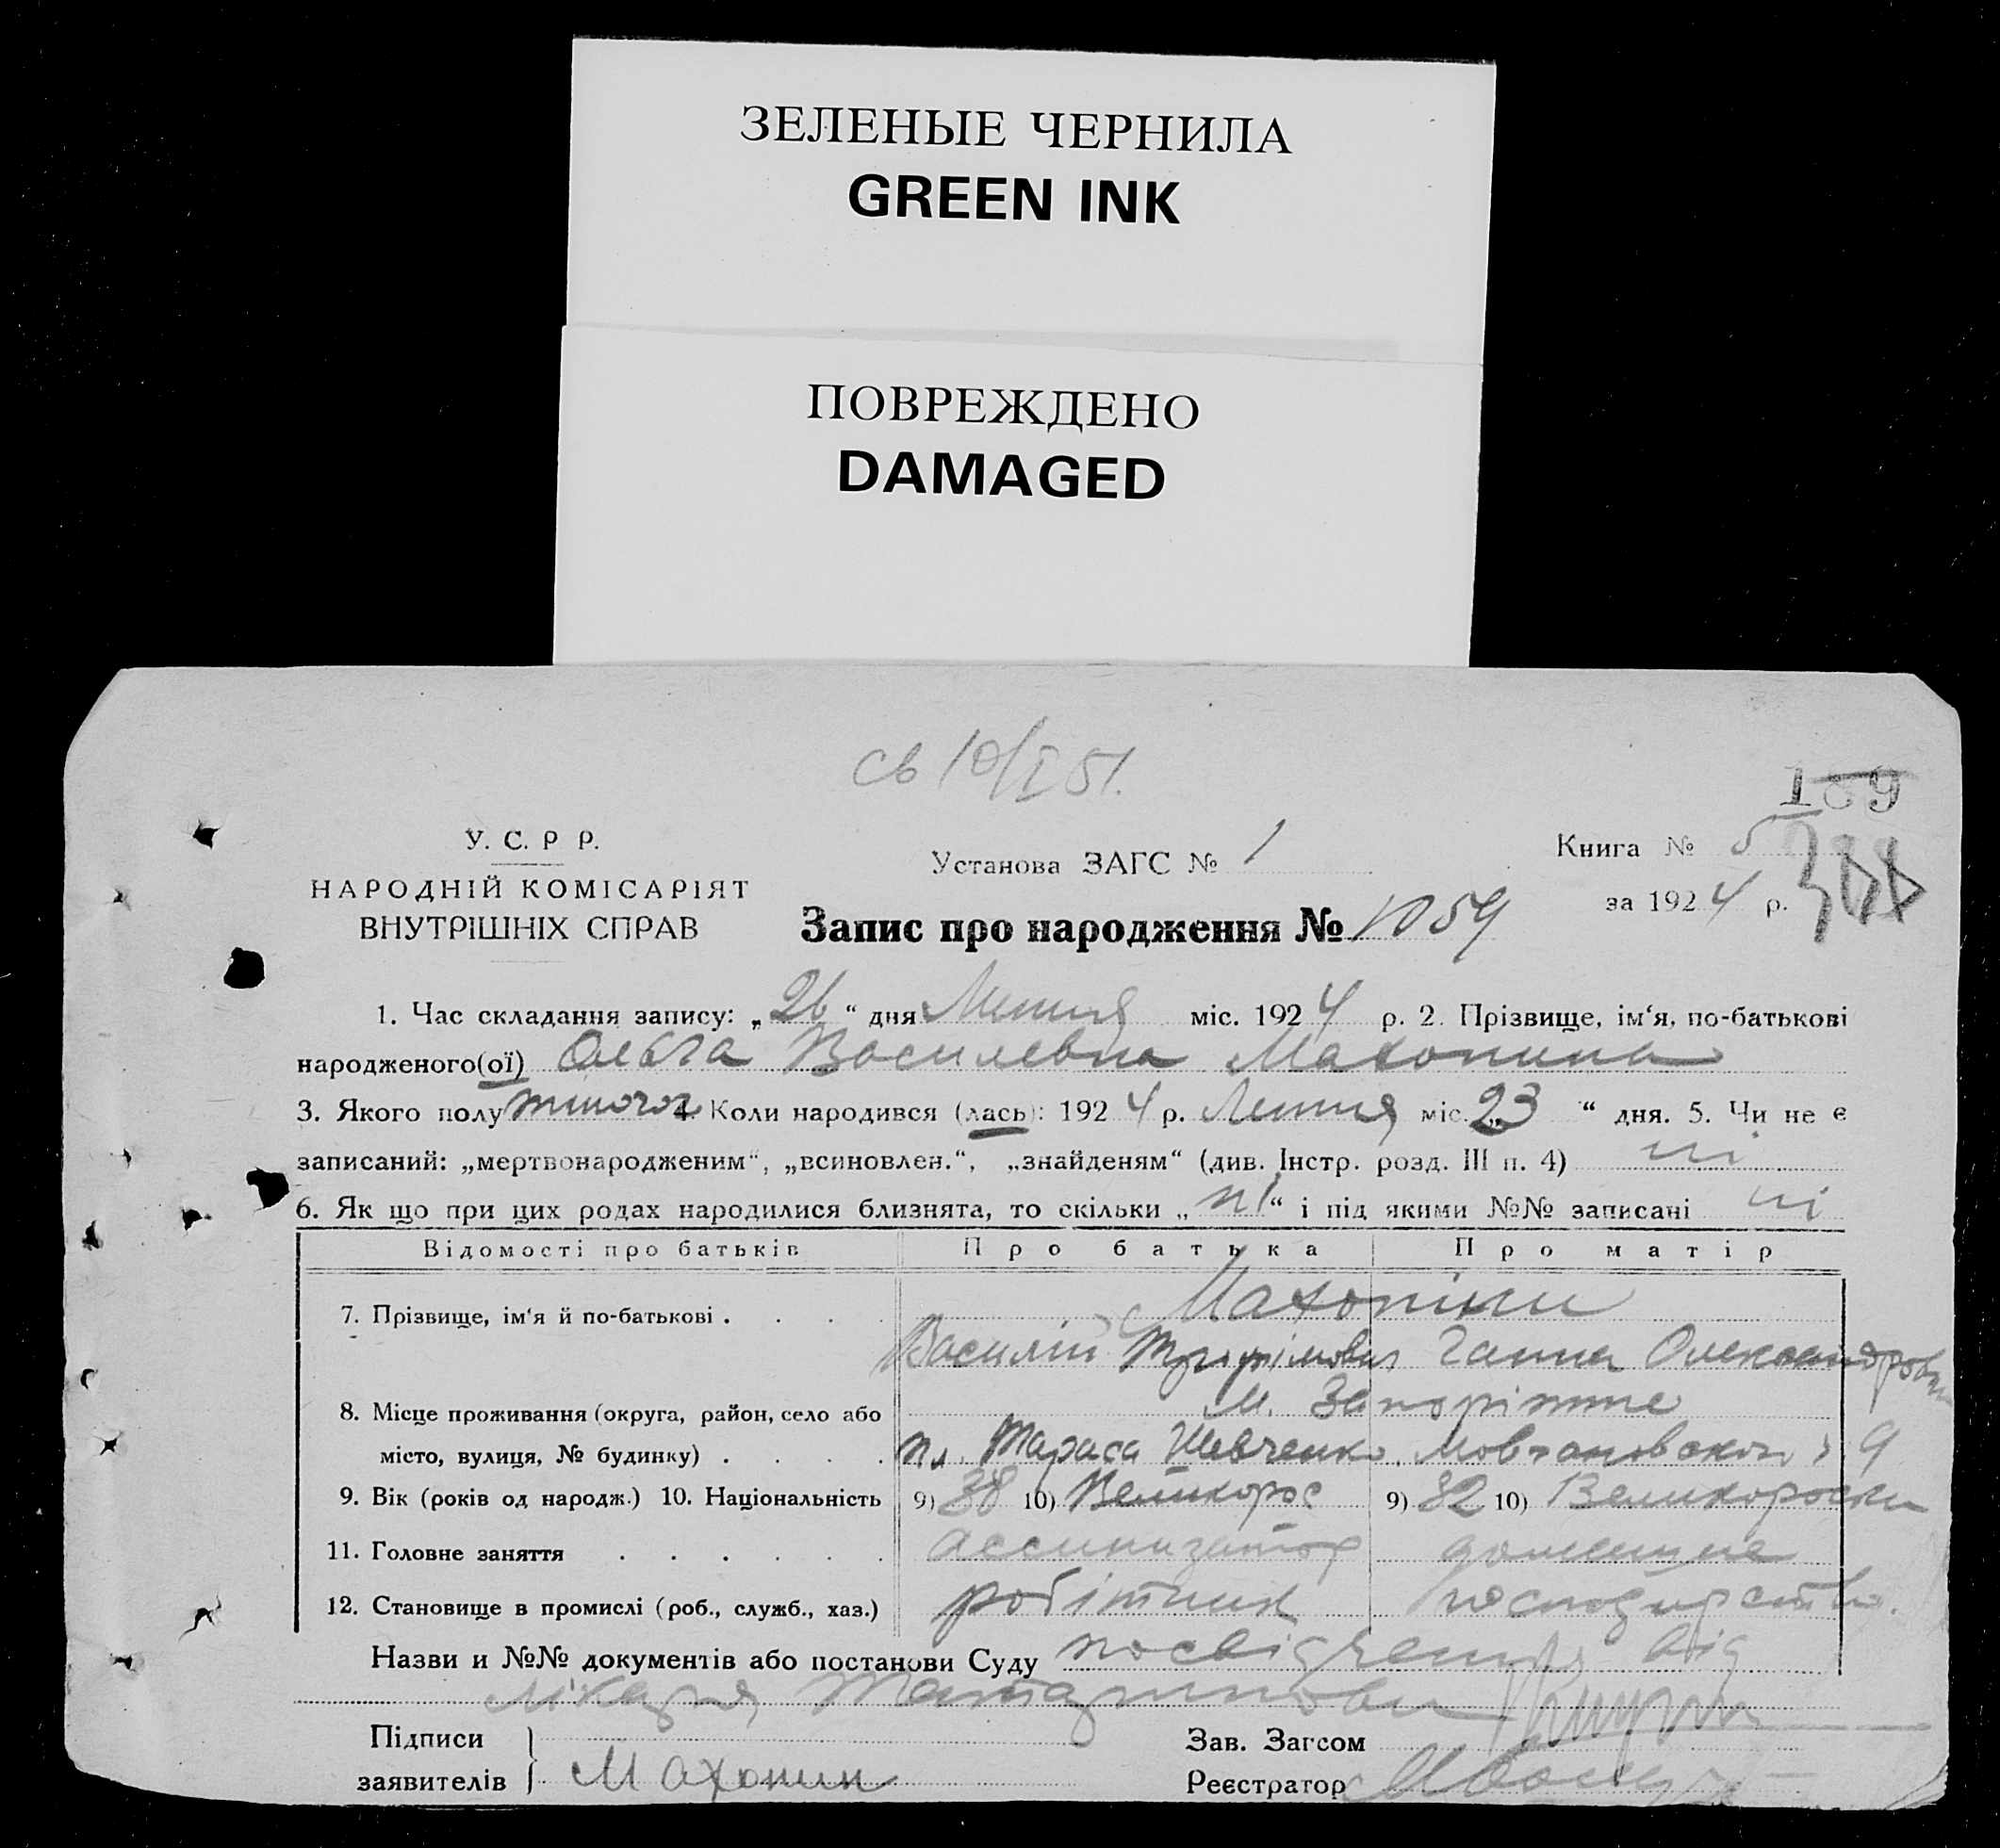 ЗЕЛЕНЫЕ ЧЕРНИЛА
GREEN INK
ПОВРЕЖДЕНО
DAMAGED
св 10/I 51.
189
У. С. Р Р.
НАРОДНІЙ КОМІСАРІЯТ
ВНУТРІШНІХ СПРАВ
Установа ЗАГС № 1
Книга № 5
за 1924 р.
Запис про народження № 1059
1. Час складання запису: „26“ дня Липня міс. 1924 р. 2. Прізвище, ім‘я, по-батькові
народженого(ої) Ольга Василевна Махонина
3. Якого полу жіночог 4. Коли народився (лась): 1924 р. Липня міс. „23“ дня. 5. Чи не є
записаний: „мертвонародженим“, „всиновлен.“, „знайденям“ (див. Інстр. розд. III п. 4) ні
6. Як що при цих родах народилися близнята, то скільки „ні“ і під якими №№ записані ні
Відомості про батьків Про батька Про матір
7. Прізвище, ім‘я й по-батькові Махоніни
Василій Трифімович Ганна Олександровна
8. Місце проживання (округа, район, село або м. Запоріжже
місто, вулиця, № будинку) пл. Тараса Шевченко 9
9. Вік (років од народж.) 10. Національність 9) 38 10) Великорос 9) 32 10) Великороска
11. Головне заняття ассинизатор домашне
12. Становище в промислі (роб., служб., хаз.) робітник господарство.
Назви и №№ документів або постанови Суду посвідчення від
лікаря
Підписи
заявителів Махонин
Зав. Загсом
Реєстратор